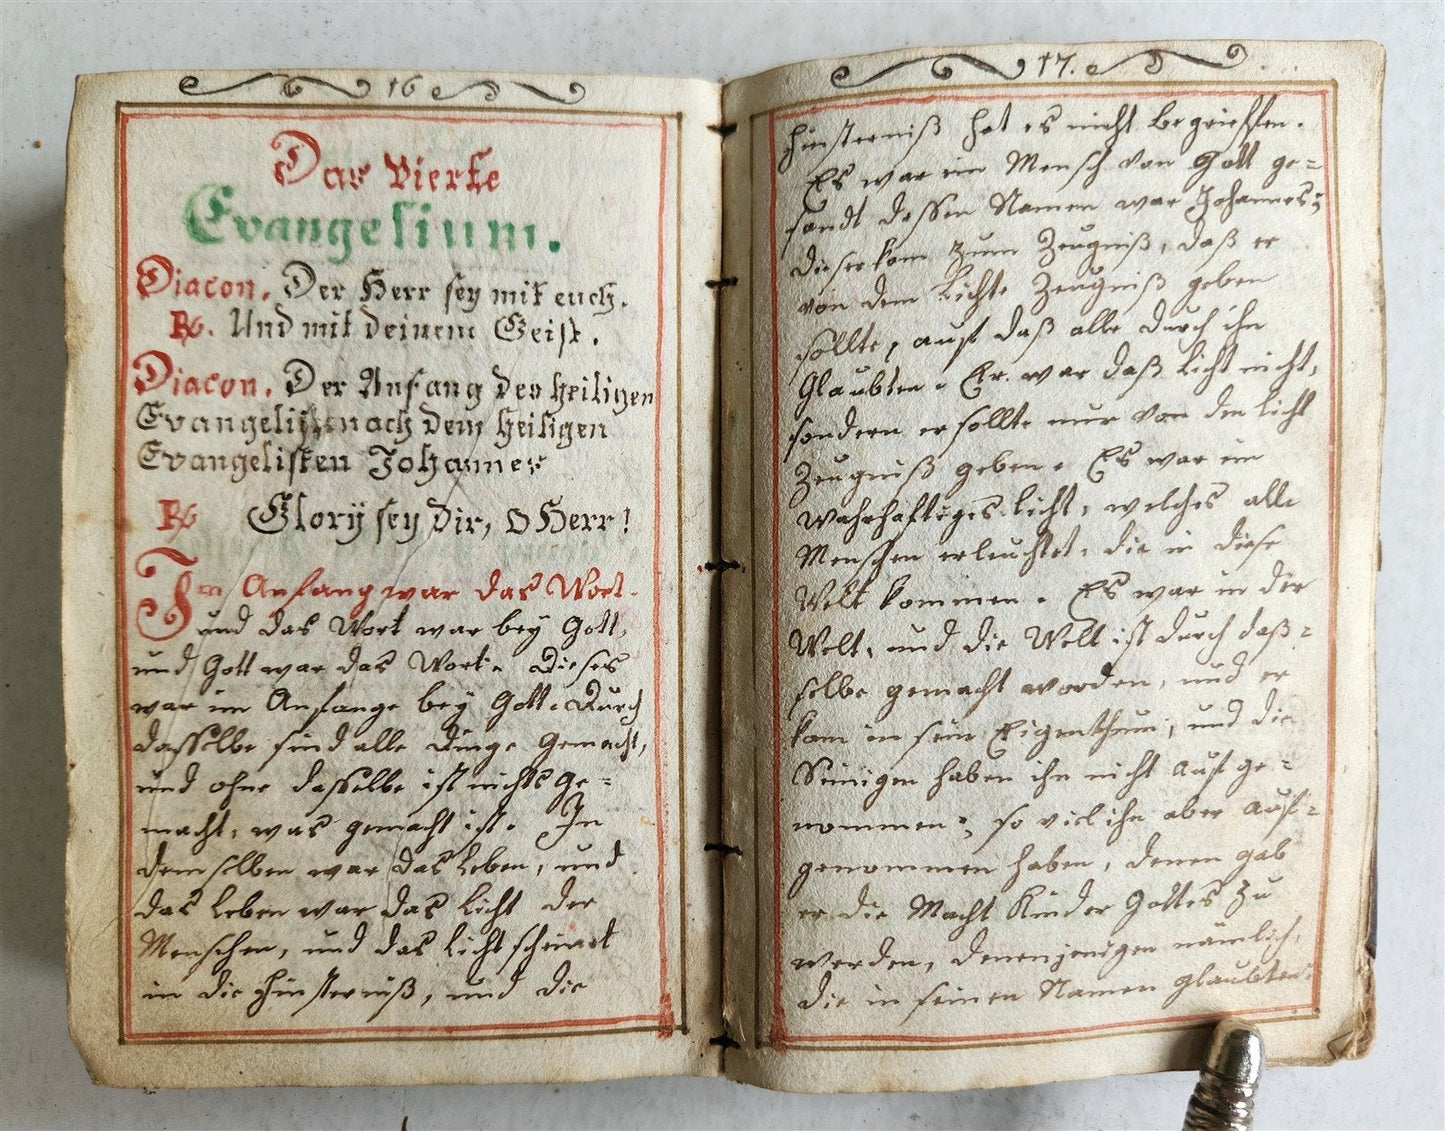 16
Das Vierte
Evangelium.
Diacon. Der Herr sey mit euch.
R. Und mit deinem Geist.
Diacon. Der Anfang des heiligen
Evangelisten nach dem heiligen
Evangelisten Johannes
R. Glorÿ sey dir, O Herr!
Im Anfang war das Wort.
und das Wort war beÿ Gott,
und Gott war das Wort. Dieses
war im Anfange beÿ Gott. Durch
dasselbe sind alle Dinge gemacht,
und ohne dasselbe ist nichts ge=
macht, was gemacht ist. In
demselben war das Leben, und
das Leben war das Licht der
Menschen, und das Licht scheinet
in die Finsterniß, und die
17.
Finsterniß hat es nicht begrieffen.
Es war ein Mensch von Gott ge=
sandt dessen Namen war Johannes;
dieser kam zum Zeugniß, daß er
von dem Lichte Zeugniß geben
sollte, auf daß alle durch ihn
Glaubten. Er war daß Licht nicht,
sondern er sollte nur von den Licht
Zeugniß geben. Es war ein
wahrhaftiges Licht, welches alle
Menschen erleuchtet, die in diese
Welt kommen. Es war in der
Welt, und die Welt ist durch daß=
selbe gemacht worden, und er
kam in sein Eigenthum, und die
Seinigen haben ihn nicht auf ge=
nommen; so viel ihn aber auf=
genommen haben, denen gab
er die Macht Kinder Gottes zu
werden, denenjenigen nämlich,
die in seinen Namen glaubten: